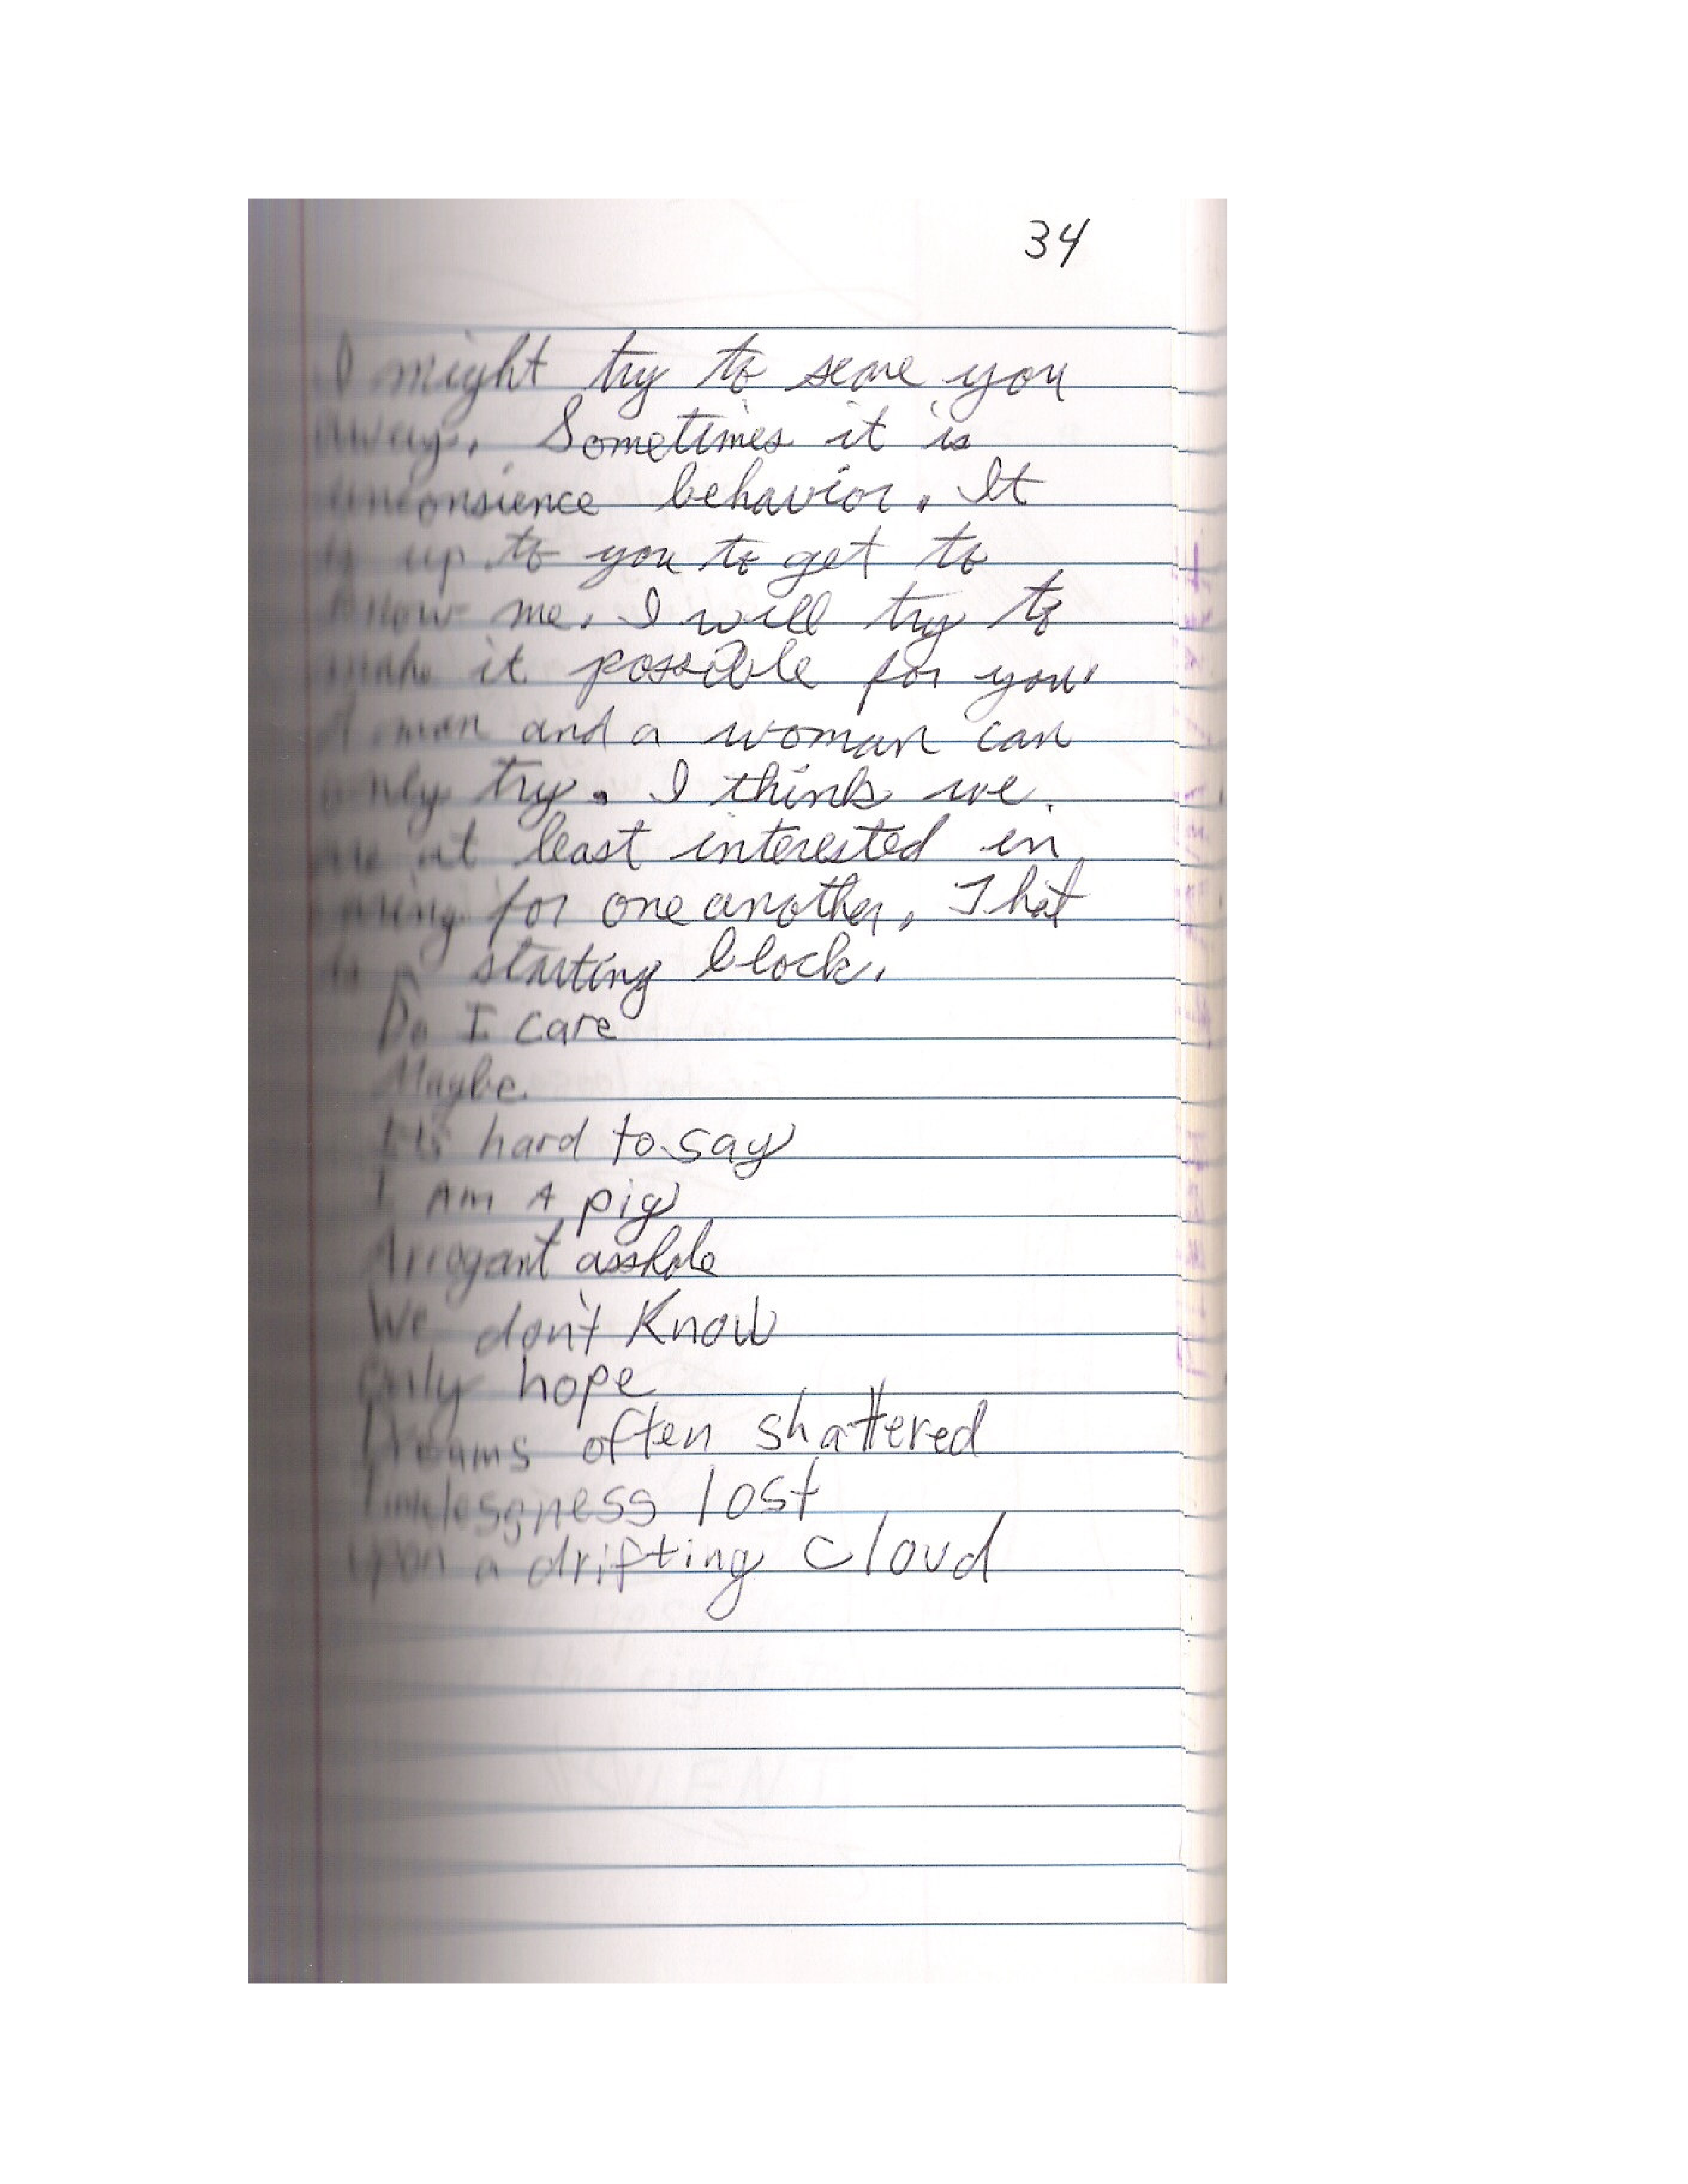 34
I might try to scare you
away. Sometimes it is
unconsience behavior. It
is up to you to get to
know me. I will try to
make it possible for you.
A man and a woman can
only try. I think we
are at least interested in
caring for one another. That
is starting block.
Do I care
Maybe.
It's hard to say
I AM A pig
Arrogant asshole
We don't Know
only hope
Dreams often shattered
lost
upon a drifting cloud